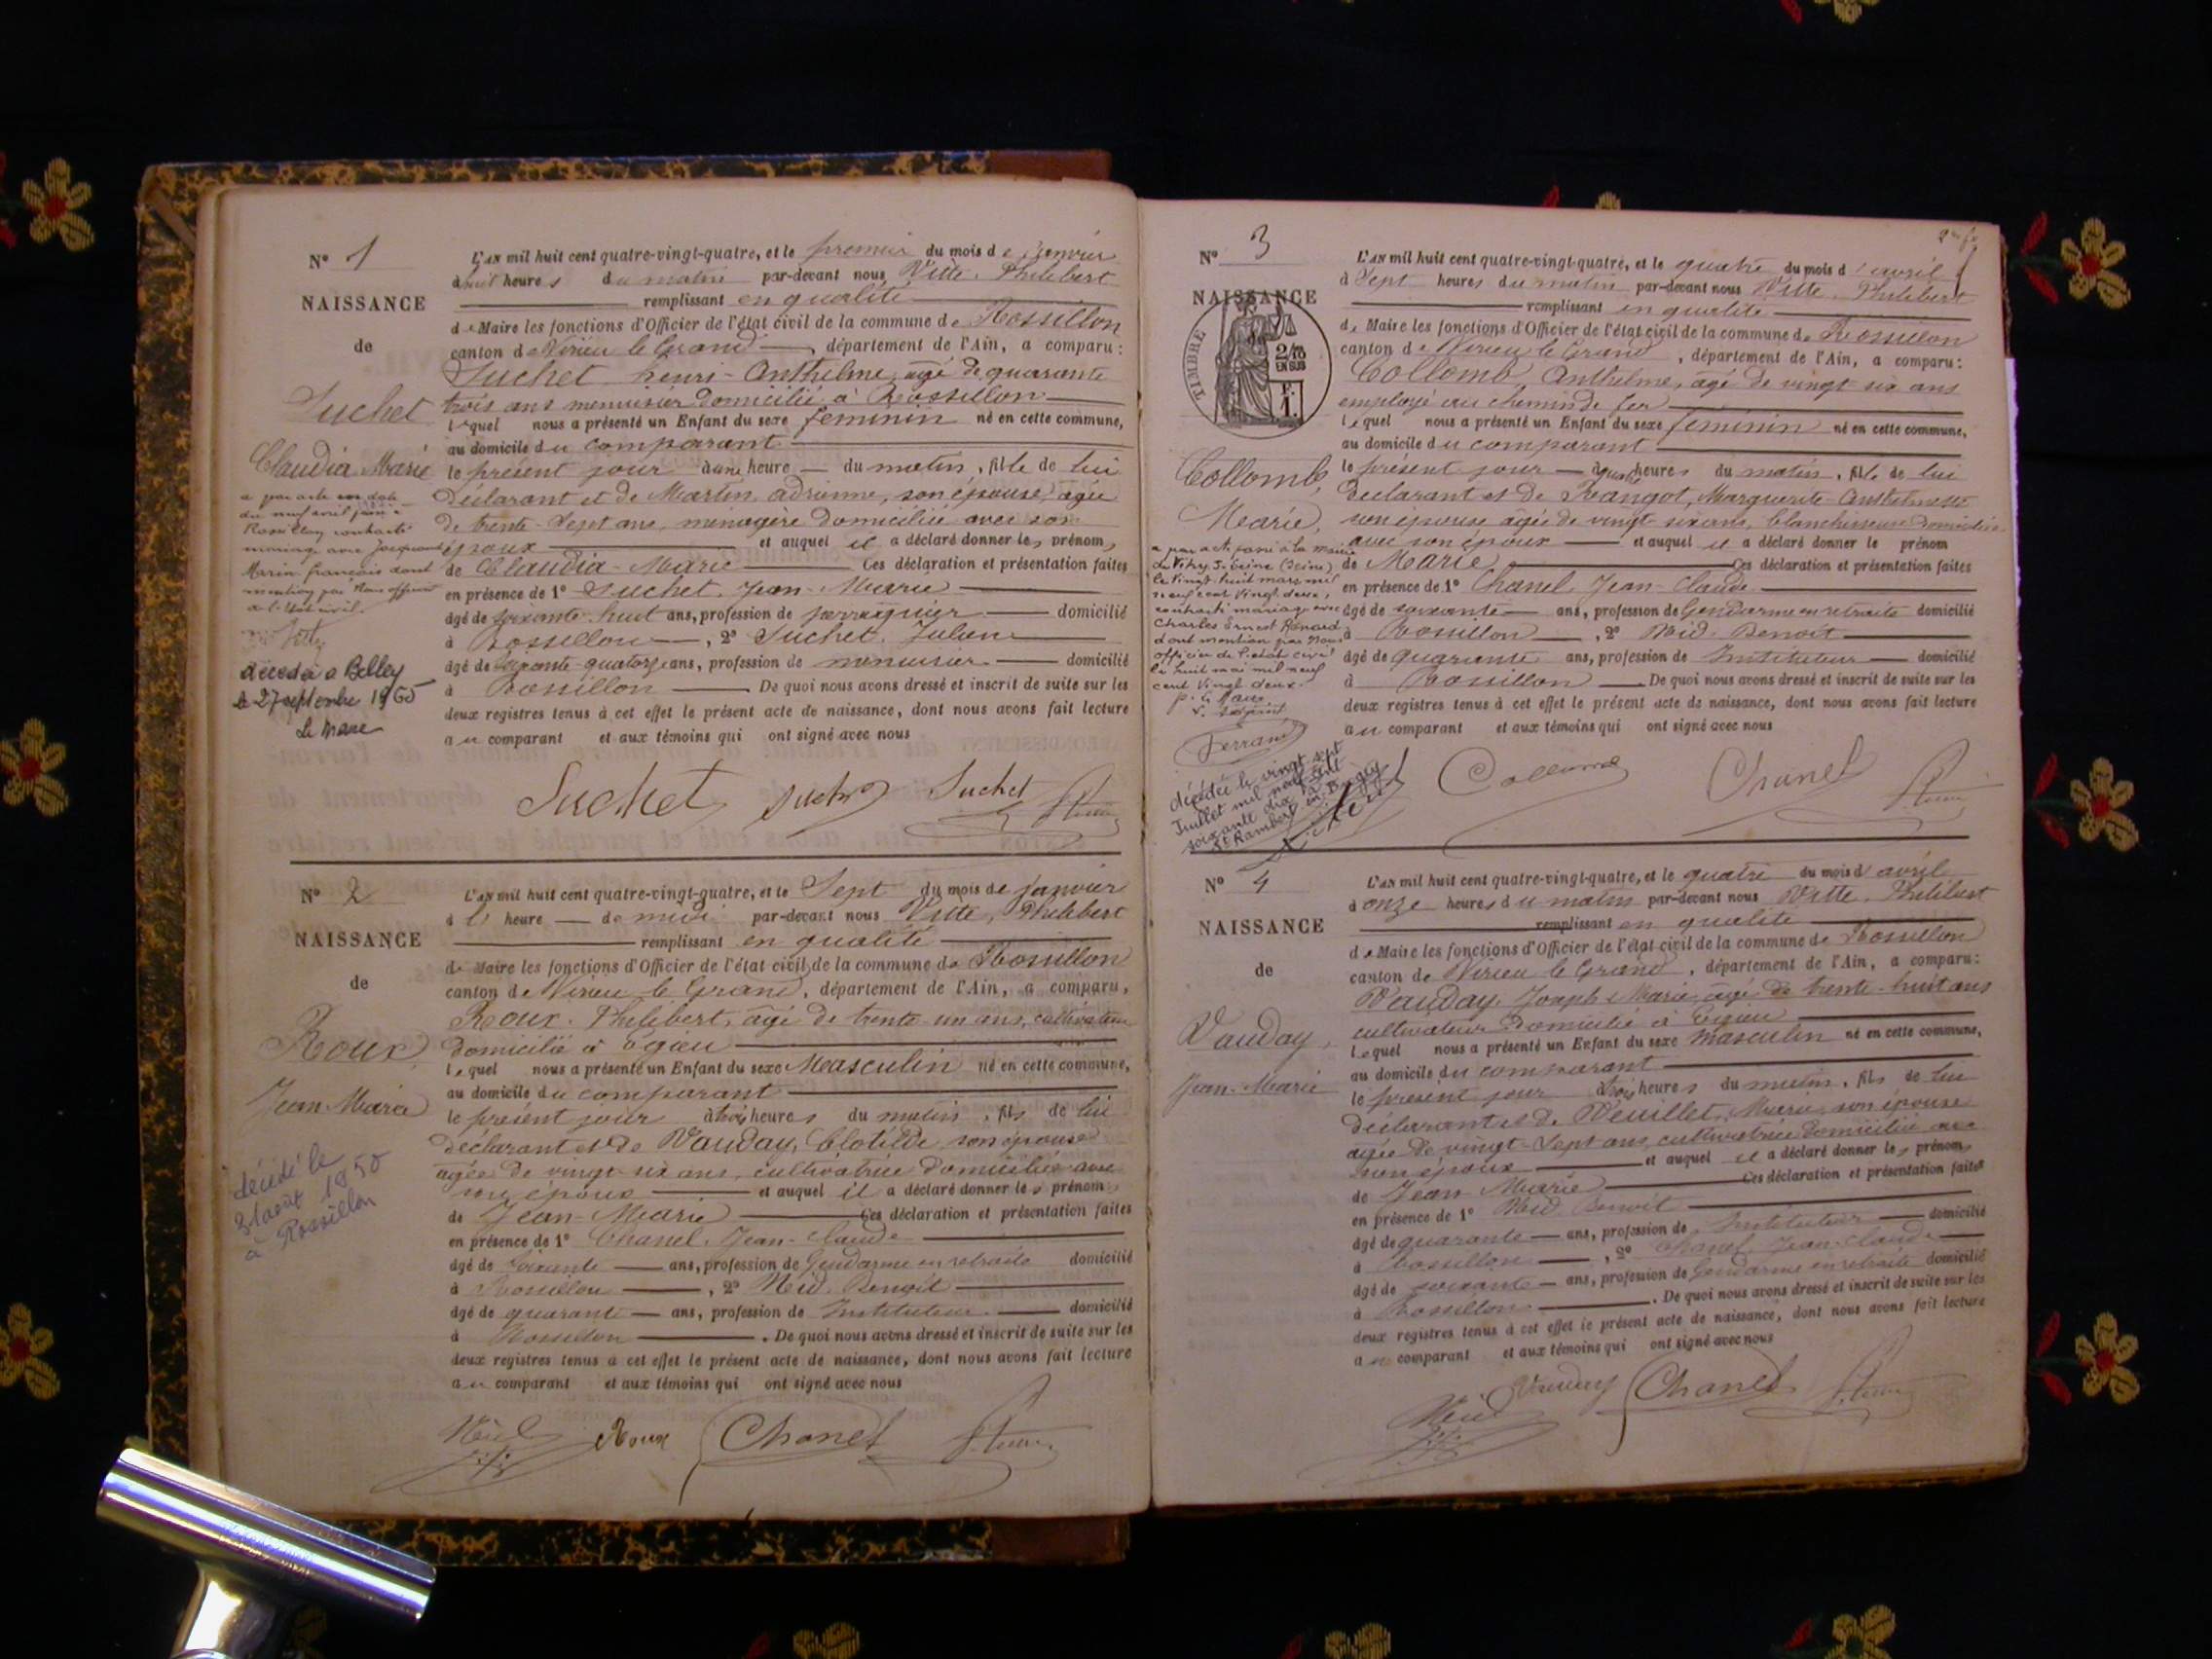 N° 1
NAISSANCE
de
Suchet
Claudia Marie
a par acte en date
du neuf avril
Rossillon contracté
mariage avec Jacquand
Marin françois dont
mention par Nous officier
de l'état civil.
décédée a Belley
le 27 septembre 1965
Le Maire
L'AN mil huit cent quatre-vingt-quatre, et le premier du mois de Janvier
à huit heures du matin par-devant nous Vitte, Philibert
remplissant en qualité
de Maire les fonctions d'Officier de l'état civil de la commune de Rossillon
canton de Virieu le Grand, département de l'Ain, a comparu:
Suchet henri-Anthelme, agé de quarante
trois ans menuisier domicilié à Rossillon
lequel nous a présenté un Enfant du sexe féminin né en cette commune,
au domicile du comparant
le présent jour à une heure du matin, fille de lui
déclarant et de Martin, adrienne, son épouse, agée
de trente-sept ans, ménagère domiciliée avec son
époux et auquel il a déclaré donner les prénoms
de Claudia-Marie Ces déclaration et présentation faites
en présence de 1° Suchet, Jean-Marie
âgé de soixante-huit ans, profession de perruquier domicilié
à Rossillon, 2° Suchet, Julien
âgé de soixante-quatorze ans, profession de menuisier domicilié
à Rossillon De quoi nous avons dressé et inscrit de suite sur les
deux registres tenus à cet effet le présent acte de naissance, dont nous avons fait lecture
au comparant et aux témoins qui ont signé avec nous
Suchet Suchet Suchet
N° 2
NAISSANCE
de
Roux
Jean-Marie
décédé le
31 août 1950
à Rossillon
L'AN mil huit cent quatre-vingt-quatre, et le Sept du mois de janvier
à l' heure de midi par-devant nous Vitte, Philibert
remplissant en qualité
de Maire les fonctions d'Officier de l'état civil de la commune de Rossillon
canton de Virieu le Grand, département de l'Ain, a comparu,
Roux, Philibert, âgé de trente-un ans, cultivateur
domicilié à Egieu
lequel nous a présenté un Enfant du sexe Masculin né en cette commune,
au domicile du comparant
le présent jour à trois heures du matin, fils de lui
déclarant et de Vauday, Clotilde, son épouse
agée de vingt-six ans, cultivatrice domiciliée avec
son époux et auquel il a déclaré donner les prénoms
de Jean-Marie Ces déclaration et présentation faites
en présence de 1° Chanel, Jean-Claude
âgé de soixante ans, profession de Gendarme en retraite domicilié
à Rossillon, 2° Nid, Benoit
âgé de quarante ans, profession de Instituteur domicilié
à Rossillon. De quoi nous avons dressé et inscrit de suite sur les
deux registres tenus à cet effet le présent acte de naissance, dont nous avons fait lecture
au comparant et aux témoins qui ont signé avec nous
Roux Chanel
N° 3
NAISSANCE
de
TIMBRE
2/10
EN SUS
F.
1.
Collomb,
Marie,
a par acte passé à la mairie
de Vitry s. Seine (Seine)
le vingt huit mars mil
neuf cent vingt deux,
contracté mariage avec
Charles Ernest Renard
dont mention par Nous
officier de l'état civil
le huit mai mil neuf
cent vingt deux.
p. le Maire
Ferrand
décédée le vingt sept
Juillet mil neuf cent
soixante dix à
St Rambert en Bugey
L'AN mil huit cent quatre-vingt-quatre, et le quatre du mois d'avril
à Sept heures du matin par-devant nous Vitte, Philibert
remplissant en qualité
de Maire les fonctions d'Officier de l'état civil de la commune de Rossillon
canton de Virieu le Grand, département de l'Ain, a comparu:
Collomb, Anthelme, âgé de vingt six ans
employé au chemin de fer
lequel nous a présenté un Enfant du sexe féminin né en cette commune,
au domicile du comparant
le présent jour à quatre heures du matin, fille de lui
déclarant et de Rangot, Marguerite-Anthelmette
son épouse agée de vingt-six ans, blanchisseuse domiciliée
avec son époux et auquel il a déclaré donner le prénom
de Marie Ces déclaration et présentation faites
en présence de 1° Chanel, Jean-Claude
âgé de soixante ans, profession de Gendarme en retraite domicilié
à Rossillon, 2° Nid, Benoit
âgé de quarante ans, profession de Instituteur domicilié
à Rossillon De quoi nous avons dressé et inscrit de suite sur les
deux registres tenus à cet effet le présent acte de naissance, dont nous avons fait lecture
au comparant et aux témoins qui ont signé avec nous
Collomb Chanel
N° 4
NAISSANCE
de
Vauday,
Jean-Marie
L'AN mil huit cent quatre-vingt-quatre, et le quatre du mois d'avril
à onze heures du matin par-devant nous Vitte, Philibert
remplissant en qualité
de Maire les fonctions d'Officier de l'état civil de la commune de Rossillon
canton de Virieu le Grand, département de l'Ain, a comparu:
Vauday, Joseph-Marie, âgé de trente-huit ans
cultivateur domicilié à Egieu
lequel nous a présenté un Enfant du sexe masculin né en cette commune,
au domicile du comparant
le présent jour à trois heures du matin, fils de lui
déclarant et de Veuillet, Marie, son épouse
agée de vingt-sept ans, cultivatrice domiciliée avec
son époux et auquel il a déclaré donner les prénoms
de Jean-Marie Ces déclaration et présentation faites
en présence de 1° Nid Benoit
âgé de quarante ans, profession de Instituteur domicilié
à Rossillon, 2° Chanel, Jean-Claude
âgé de soixante ans, profession de Gendarme en retraite domicilié
à Rossillon. De quoi nous avons dressé et inscrit de suite sur les
deux registres tenus à cet effet le présent acte de naissance, dont nous avons fait lecture
au comparant et aux témoins qui ont signé avec nous
Vauday Chanel